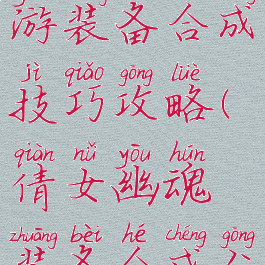 游装备合成
jì qiǎo gōng lüè
技巧攻略(
qiàn nǚ yōu hún
倩女幽魂
zhuāng bèi hé chéng gōng
装备合成公